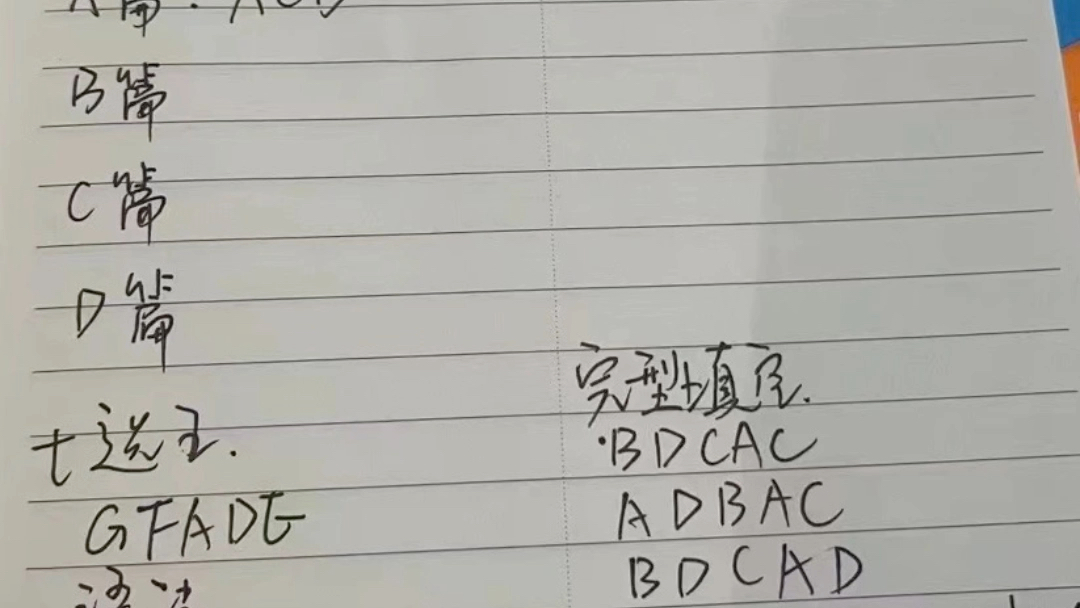 A篇: ACD
B篇
C篇
D篇
七选五.
GFADE
语法
完型填空.
·BDCAC
ADBAC
BDCAD